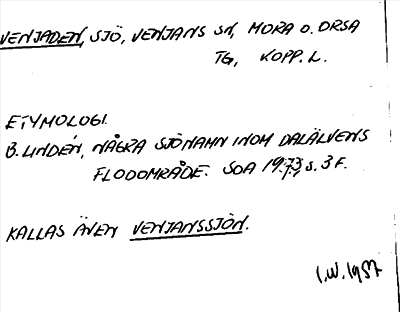 VENJADEN, SJÖ, VENJANS SN, MORA O. ORSA
TG, KOPP. L.
ETYMOLOGI.
B. LINDÉN, NÅGRA SJÖNAMN INOM DALÄLVENS
FLODOMRÅDE. SOA 1973 S. 3 F.
KALLAS ÄVEN VENJANSSJÖN.
I.W. 1987